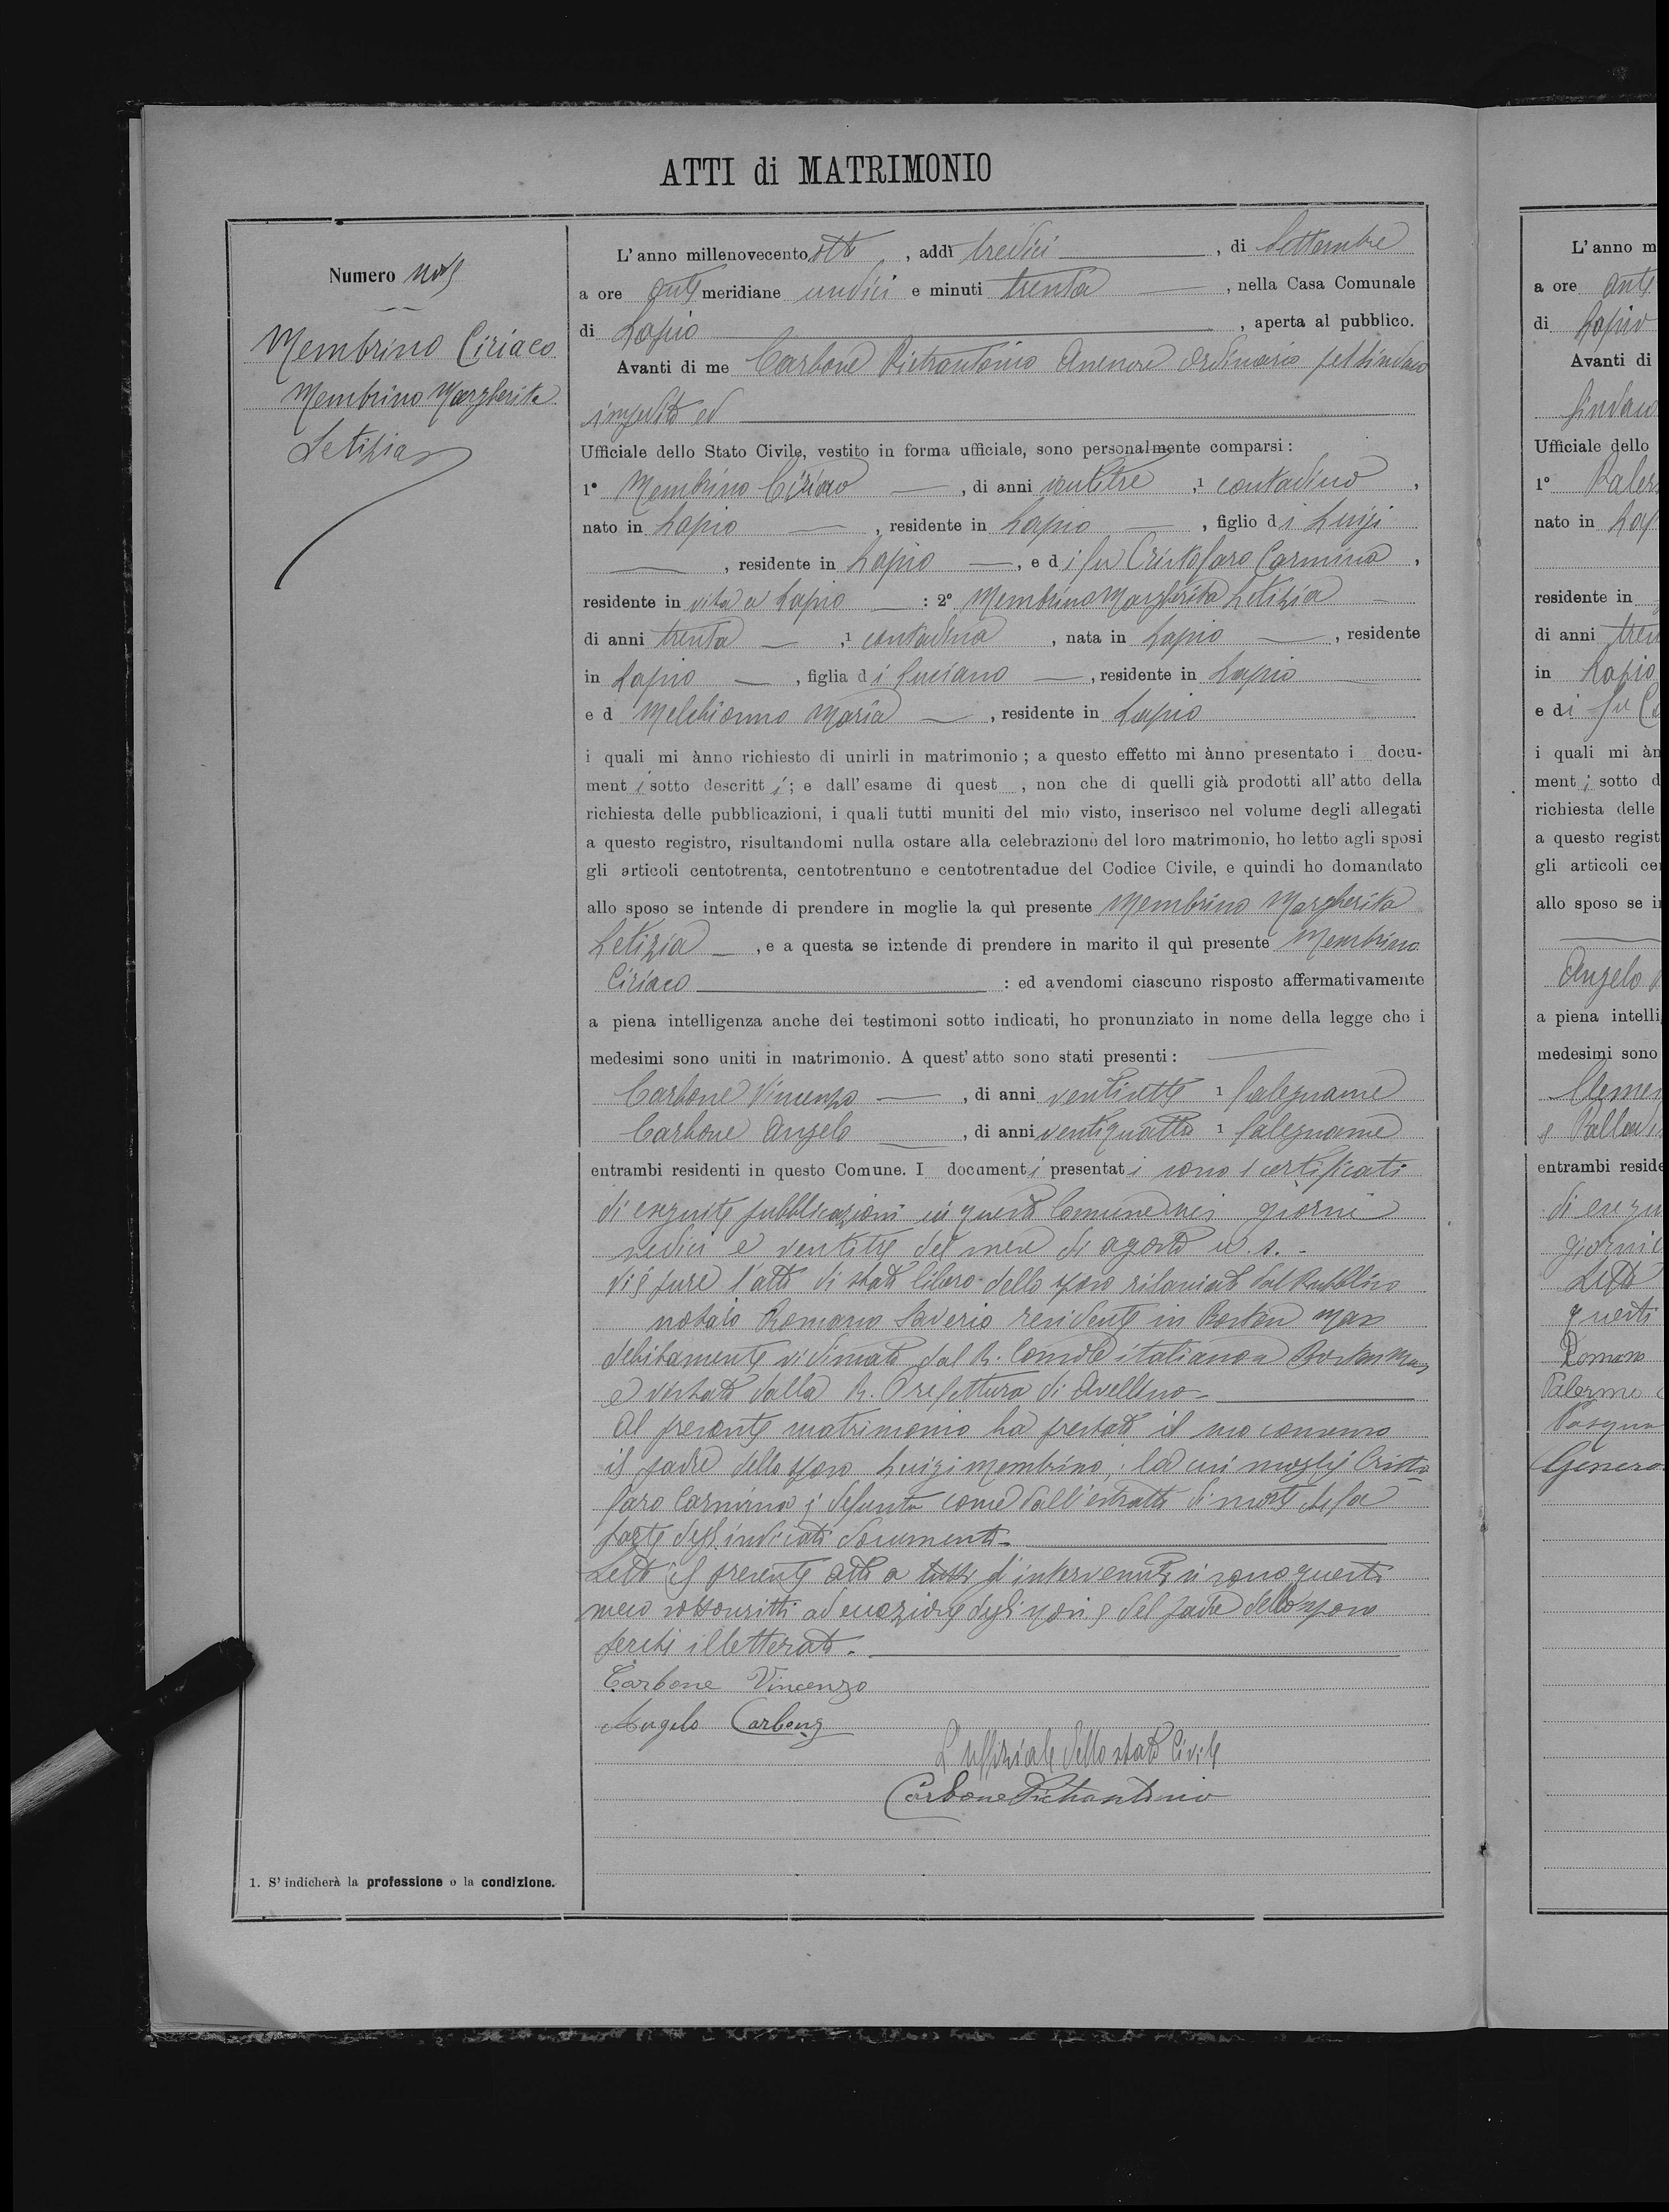 ATTI di MATRIMONIO
Numero nove
Membrino Ciriaco
Membrino Margherita
Letizia
L'anno millenovecento otto, addì tredici, di Settembre
a ore ante meridiane undici e minuti trenta, nella Casa Comunale
di Lapio, aperta al pubblico.
Avanti di me Carbone Pietrantonio Assessore Ordinario pel Sindaco
impedito ed
Ufficiale dello Stato Civile, vestito in forma ufficiale, sono personalmente comparsi:
1° Membrino Ciriaco, di anni ventitre, 1 contadino,
nato in Lapio, residente in Lapio, figlio di Luigi
, residente in Lapio, e di fu Cristofaro Carmina,
residente in vita a Lapio: 2° Membrino Margherita Letizia
di anni trenta, 1 contadina, nata in Lapio, residente
in Lapio, figlia di Luciano, residente in Lapio
e d Melchionno Maria, residente in Lapio
i quali mi ànno richiesto di unirli in matrimonio; a questo effetto mi ànno presentato i docu-
menti sotto descritti; e dall'esame di quest, non che di quelli già prodotti all'atto della
richiesta delle pubblicazioni, i quali tutti muniti del mio visto, inserisco nel volume degli allegati
a questo registro, risultandomi nulla ostare alla celebrazione del loro matrimonio, ho letto agli sposi
gli articoli centotrenta, centotrentuno e centotrentadue del Codice Civile, e quindi ho domandato
allo sposo se intende di prendere in moglie la quì presente Membrino Margherita
Letizia, e a questa se intende di prendere in marito il quì presente Membrino
Ciriaco: ed avendomi ciascuno risposto affermativamente
a piena intelligenza anche dei testimoni sotto indicati, ho pronunziato in nome della legge che i
medesimi sono uniti in matrimonio. A quest'atto sono stati presenti:
Carbone Vincenzo, di anni ventisette 1 falegname
Carbone Angelo, di anni ventiquattro 1 falegname
entrambi residenti in questo Comune. I documenti presentati sono i certificati
di eseguite pubblicazioni in questo Comune nei giorni
sedici e ventitre del mese di agosto u. s. -
Vi è pure l'atto di stato libero dello sposo rilasciato dal Pubblico
notaio Romano Saverio residente in Boston Mass
debitamente vidimato dal R. Console italiano a Boston Mass
e vistato dalla R. Prefettura di Avellino -
Al presente matrimonio ha prestato il suo consenso
il padre dello sposo Luigi Membrino, la cui moglie Cristo
faro Carmina è defunta come dall'estratto di morte che fa
parte degl'indicati documenti -
Letto il presente atto a tutti gl'intervenuti si sono questi
meco sottoscritti ad eccezione degli sposi e del padre dello sposo
perchè illetterati. -
Carbone Vincenzo
Angelo Carbone
L'uffiziale dello stato Civile
Carbone Pietrantonio
1. S'indicherà la professione o la condizione.
L'anno m
a ore ante
di Lapio
Avanti di
Sindaco
Ufficiale dello
1° Paler
nato in Lap
residente in
di anni tren
in Lapio
e di fu C
i quali mi àn
menti sotto d
richiesta delle
a questo regist
gli articoli ce
allo sposo se i
Angelo
a piena intelli
medesimi sono
Clemen
entrambi reside
di esegu
giorni
Letto
questi
Romano
Palermo
Pasqua
Genero